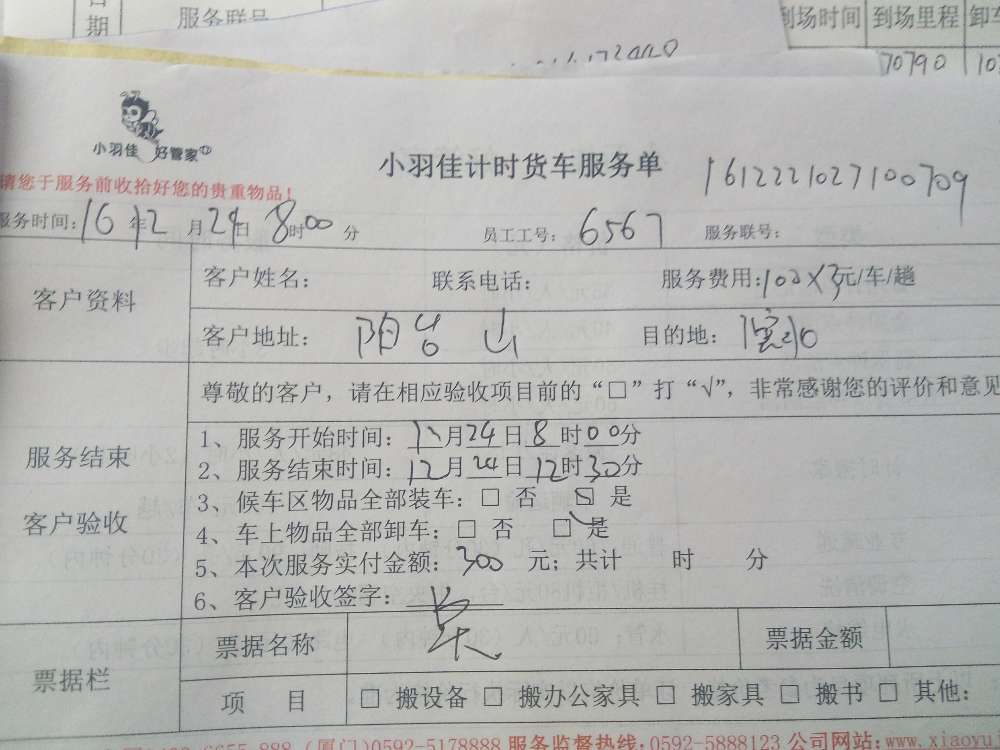 期 服务联号
到场时间 到场里程 卸车
70790
小羽佳 好管家
小羽佳计时货车服务单 1612221027100709
请您于服务前收拾好您的贵重物品！
服务时间：16年12月24日8时00分 员工工号：6567 服务联号：
客户资料
客户姓名： 联系电话： 服务费用：100×3元/车/趟
客户地址：阳台山 目的地：
尊敬的客户，请在相应验收项目前的“□”打“√”，非常感谢您的评价和意见
服务结束
客户验收
1、服务开始时间：12月24日8时00分
2、服务结束时间：12月24日12时30分
3、候车区物品全部装车：□ 否 ☑ 是
4、车上物品全部卸车：□ 否 ☑ 是
5、本次服务实付金额：300 元；共计 时 分
6、客户验收签字：
票据栏
票据名称 票据金额
项 目 □ 搬设备 □ 搬办公家具 □ 搬家具 □ 搬书 □ 其他：
(厦门)0592-5178888 服务监督热线：0592-5888123 公司网站：www.xiaoyu